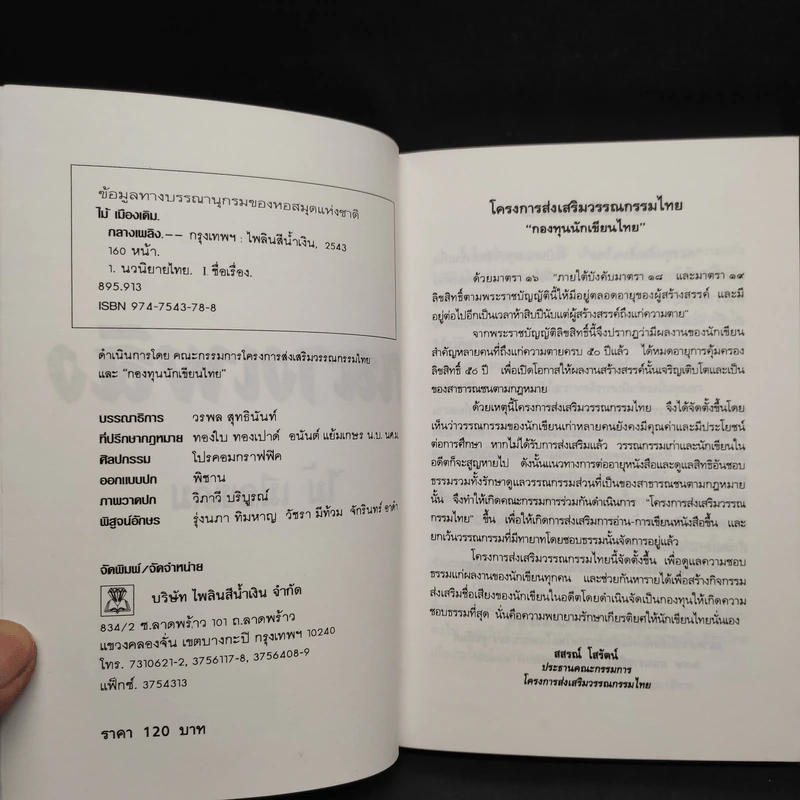 ข้อมูลทางบรรณานุกรมของหอสมุดแห่งชาติ
ไม้ เมืองเดิม.
กลางเพลิง.-- กรุงเทพฯ : ไพลินสีน้ำเงิน, 2543
160 หน้า.
1. นวนิยายไทย. I. ชื่อเรื่อง.
895.913
ISBN 974-7543-78-8
ดำเนินการโดย คณะกรรมการโครงการส่งเสริมวรรณกรรมไทย
และ “กองทุนนักเขียนไทย”
บรรณาธิการ วรพล สุทธินันท์
ที่ปรึกษากฎหมาย ทองใบ ทองเปาด์ อนันต์ แย้มเกษร น.บ. นศ.ม.
ศิลปกรรม โปรคอมกราฟฟิค
ออกแบบปก พิชาน
ภาพวาดปก วิภาวี บริบูรณ์
พิสูจน์อักษร รุ่งนภา ทิมหาญ วัชรา มีท้วม จักรินทร์
จัดพิมพ์/จัดจำหน่าย
บริษัท ไพลินสีน้ำเงิน จำกัด
834/2 ซ.ลาดพร้าว 101 ถ.ลาดพร้าว
แขวงคลองจั่น เขตบางกะปิ กรุงเทพฯ 10240
โทร. 7310621-2, 3756117-8, 3756408-9
แฟ็กซ์. 3754313
ราคา 120 บาท
โครงการส่งเสริมวรรณกรรมไทย
“กองทุนนักเขียนไทย”
ด้วยมาตรา ๑๖ “ภายใต้บังคับมาตรา ๑๘ และมาตรา ๑๙
ลิขสิทธิ์ตามพระราชบัญญัตินี้ให้มีอยู่ตลอดอายุของผู้สร้างสรรค์ และมี
อยู่ต่อไปอีกเป็นเวลาห้าสิบปีนับแต่ผู้สร้างสรรค์ถึงแก่ความตาย”
จากพระราชบัญญัติลิขสิทธิ์นี้จึงปรากฏว่ามีผลงานของนักเขียน
สำคัญหลายคนที่ถึงแก่ความตายครบ ๕๐ ปีแล้ว ได้หมดอายุการคุ้มครอง
ลิขสิทธิ์ ๕๐ ปี เพื่อเปิดโอกาสให้ผลงานสร้างสรรค์นั้นเจริญเติบโตและเป็น
ของสาธารณชนตามกฎหมาย
ด้วยเหตุนี้โครงการส่งเสริมวรรณกรรมไทย จึงได้จัดตั้งขึ้นโดย
เห็นว่าวรรณกรรมของนักเขียนเก่าหลายคนยังคงมีคุณค่าและมีประโยชน์
ต่อการศึกษา หากไม่ได้รับการส่งเสริมแล้ว วรรณกรรมเก่าและนักเขียนใน
อดีตก็จะสูญหายไป ดังนั้นแนวทางการต่ออายุหนังสือและดูแลสิทธิอันชอบ
ธรรมรวมทั้งรักษาดูแลวรรณกรรมส่วนที่เป็นของสาธารณชนตามกฎหมาย
นั้น จึงทำให้เกิดคณะกรรมการร่วมกันดำเนินการ “โครงการส่งเสริมวรรณ
กรรมไทย” ขึ้น เพื่อให้เกิดการส่งเสริมการอ่าน-การเขียนหนังสือขึ้น และ
ยกเว้นวรรณกรรมที่มีทายาทโดยชอบธรรมนั้นจัดการอยู่แล้ว
โครงการส่งเสริมวรรณกรรมไทยนี้จัดตั้งขึ้น เพื่อดูแลความชอบ
ธรรมแก่ผลงานของนักเขียนทุกคน และช่วยกันหารายได้เพื่อสร้างกิจกรรม
ส่งเสริมชื่อเสียงของนักเขียนในอดีตโดยดำเนินจัดเป็นกองทุนให้เกิดความ
ชอบธรรมที่สุด นั่นคือความพยายามรักษาเกียรติยศให้นักเขียนไทยนั่นเอง
สสรณ์ โสรัตน์
ประธานคณะกรรมการ
โครงการส่งเสริมวรรณกรรมไทย